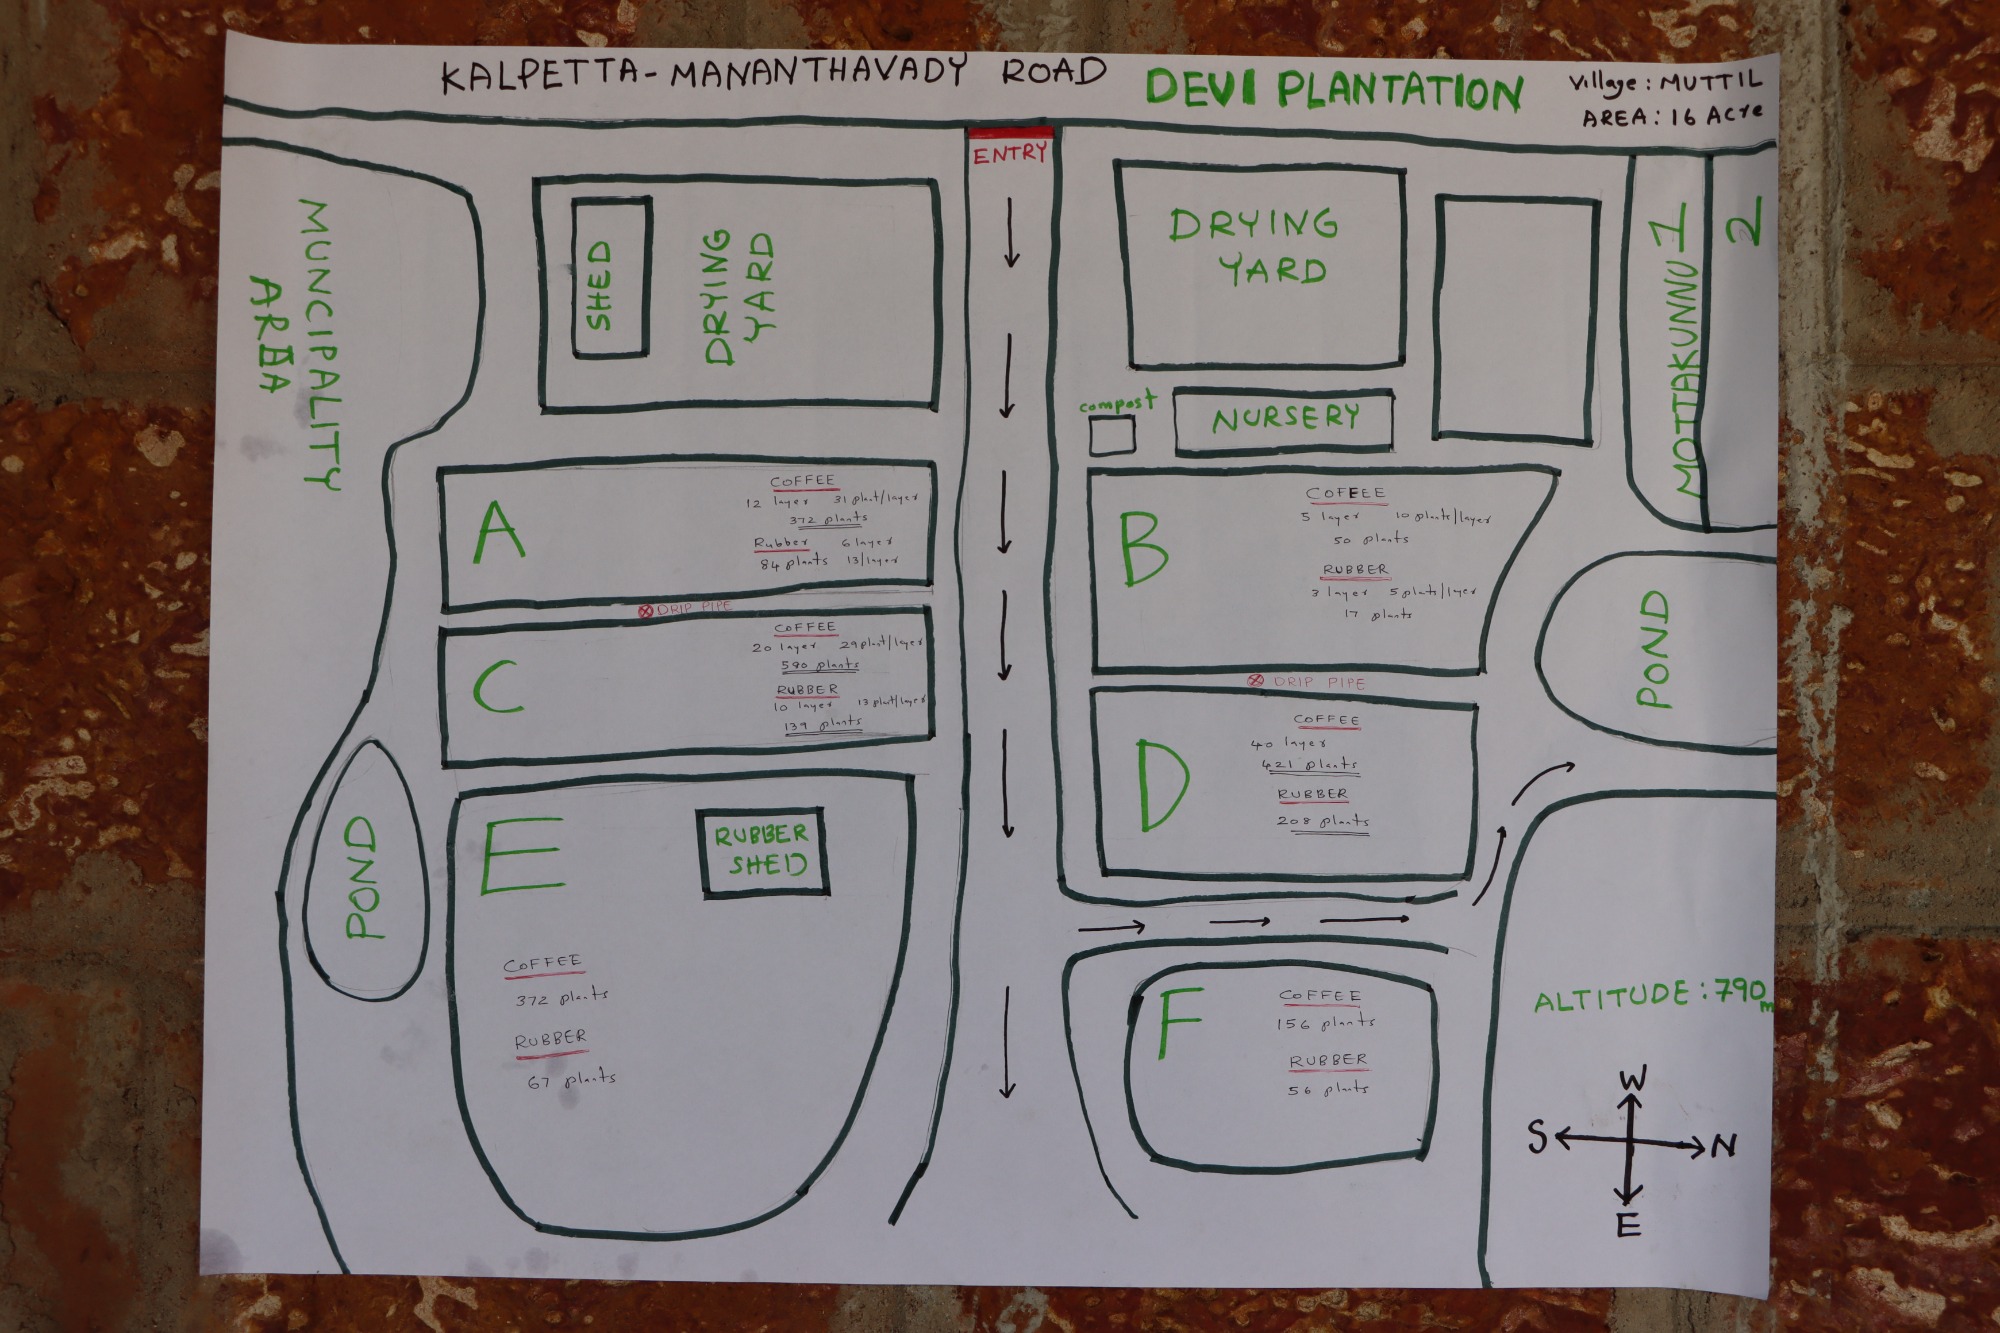 KALPETTA-MANANTHAVADY ROAD
DEVI PLANTATION
Village: MUTTIL
AREA: 16 Acre
ENTRY
MUNCIPALITY
AREA
SHED
DRYING
YARD
DRYING
YARD
MOTTAKUNNU-1
2
compost
NURSERY
A
COFFEE
12 layer 31 plant/layer
372 plants
Rubber 6 layer
84 plants 13/layer
B
COFEEE
5 layer 10 plants/layer
50 plants
RUBBER
3 layer 5 plant/layer
17 plants
DRIP PIPE
C
COFFEE
20 layer 29 plant/layer
580 plants
RUBBER
10 layer 13 plant/layer
139 plants
DRIP PIPE
D
COFFEE
40 layer
421 plants
RUBBER
208 plants
POND
POND
E
RUBBER
SHED
COFFEE
372 plants
RUBBER
67 plants
F
COFFEE
156 plants
RUBBER
56 plants
ALTITUDE: 790m
W
S N
E